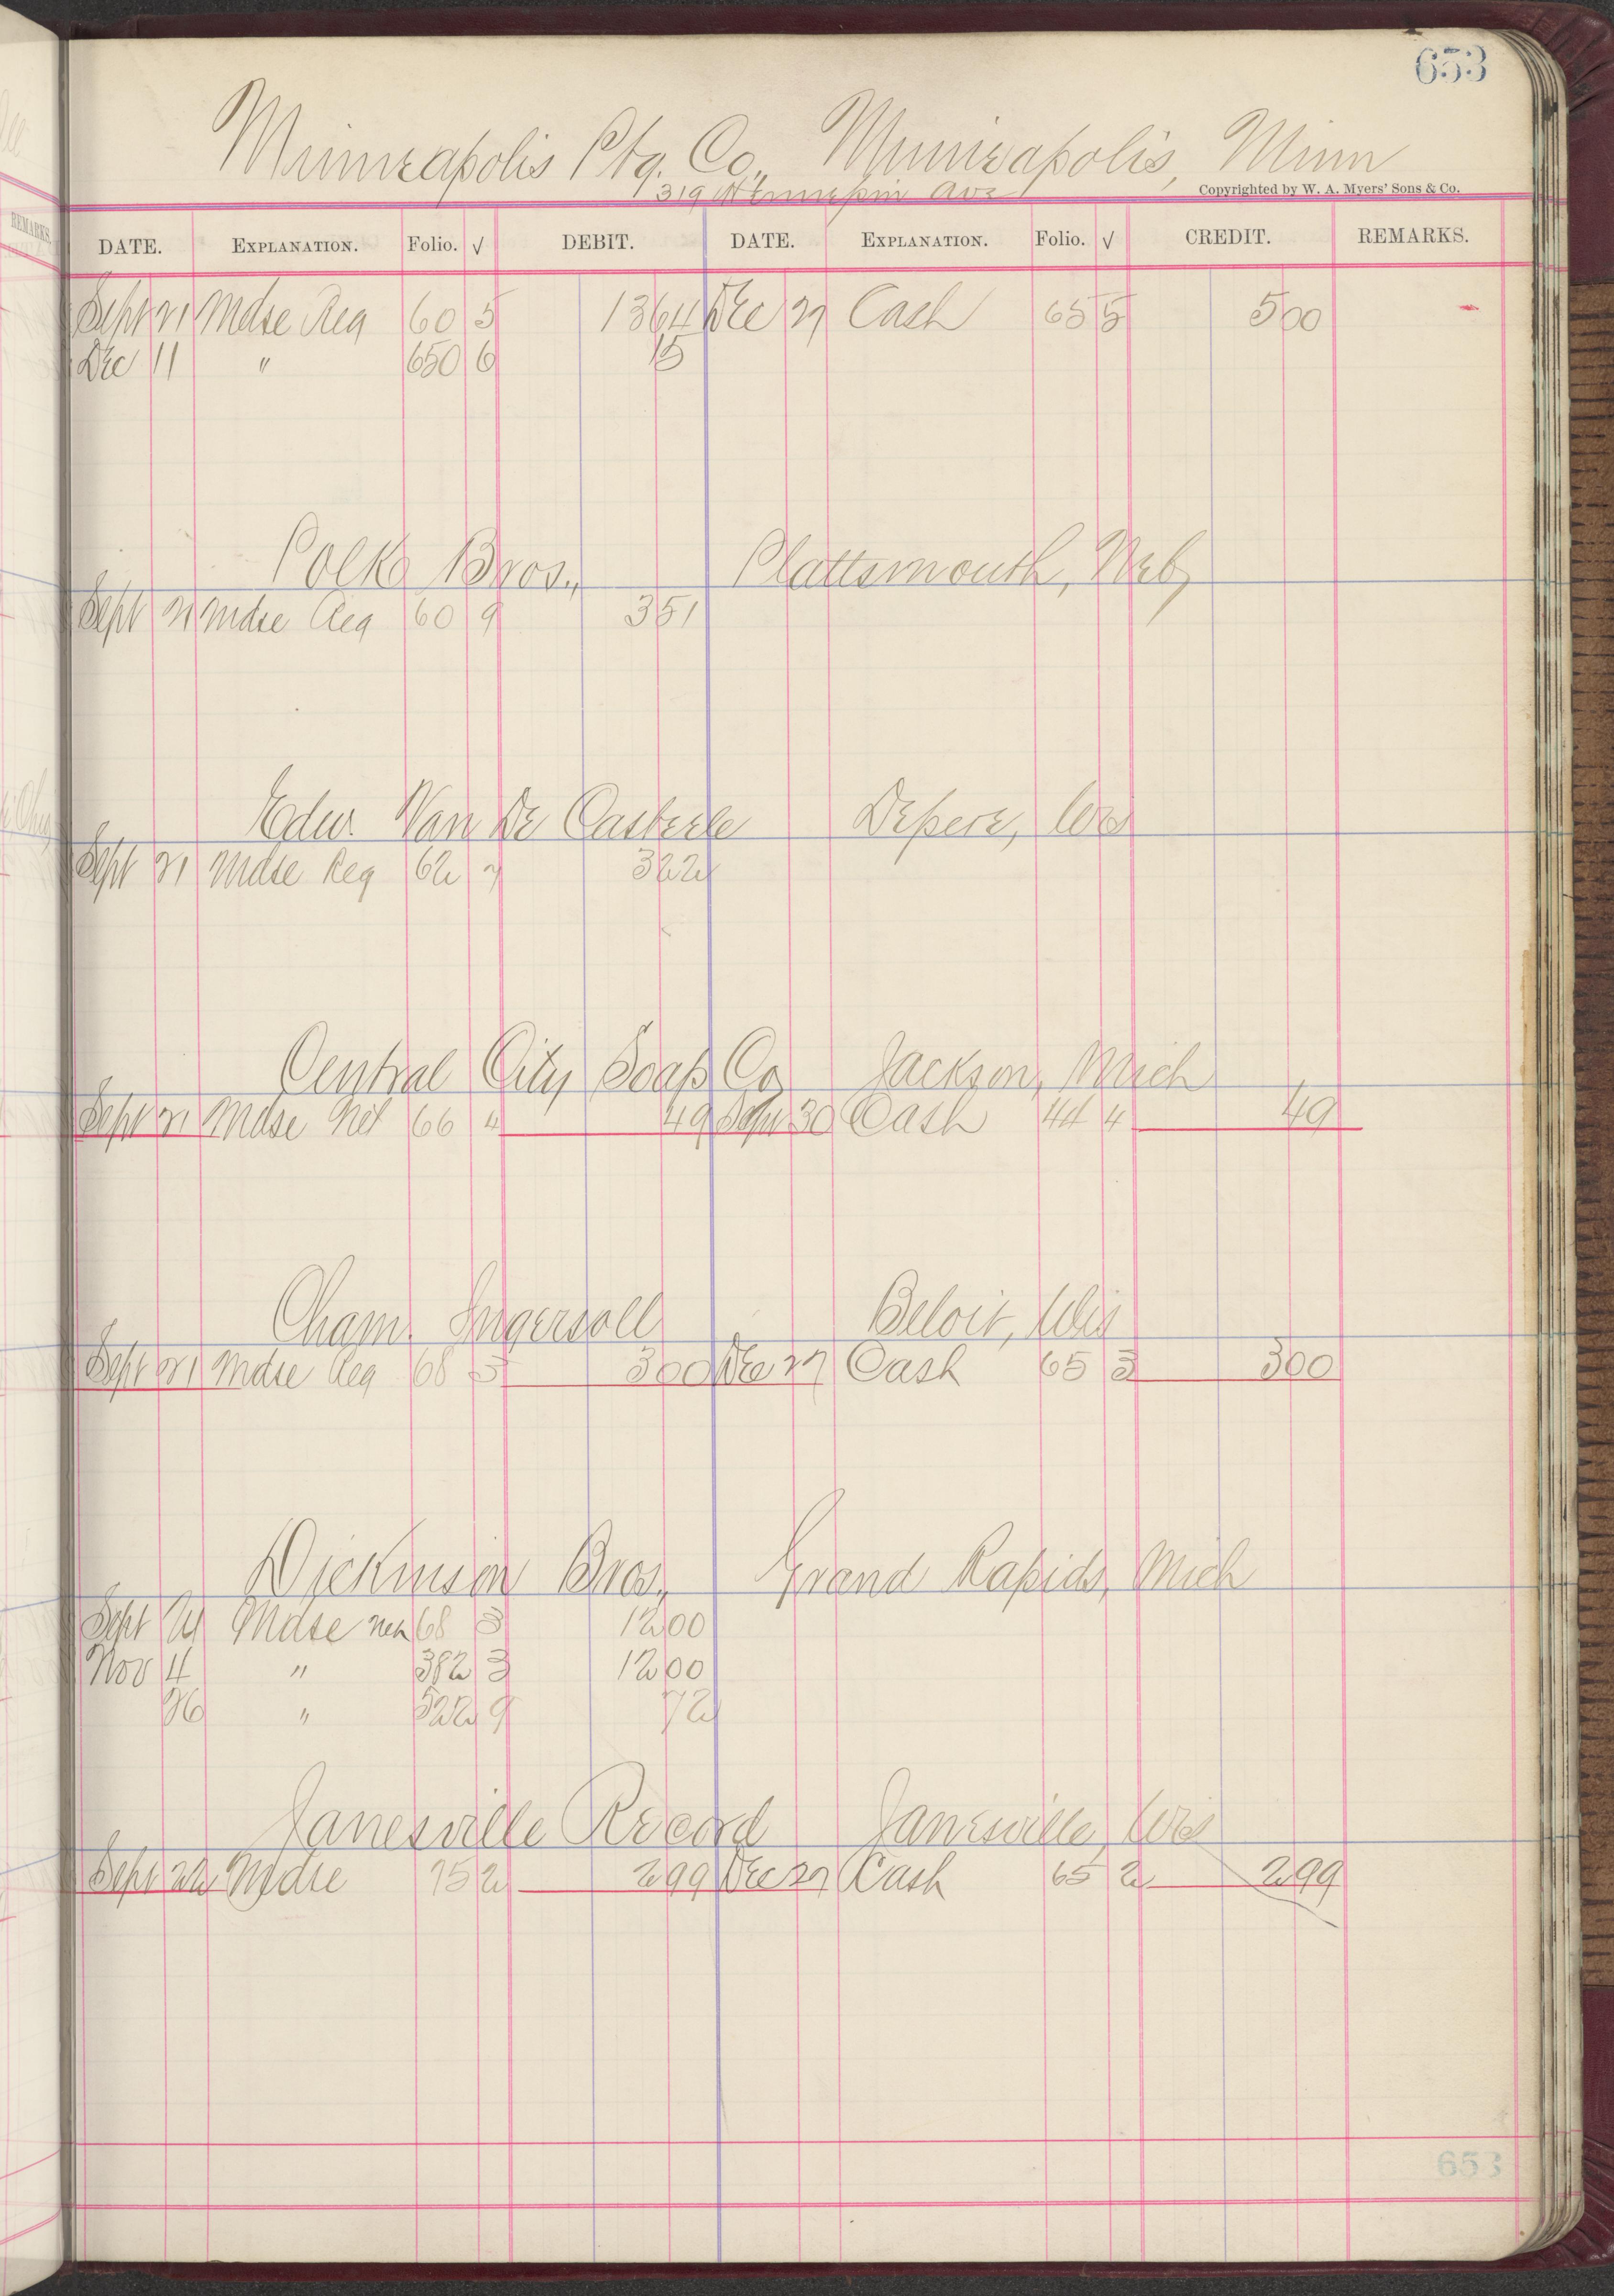 653
Minneapolis Ptg. Co., Minneapolis, Minn
319 Hennepin Ave
Copyrighted by W. A. Myers' Sons & Co.
DATE. EXPLANATION. Folio. √ DEBIT. DATE. EXPLANATION. Folio. √ CREDIT. REMARKS.
Sept 21 Mdse Reg 60 5 13 64 Dec 27 Cash 65 5 5 00
Dec 11 " 650 6 15
Polk Bros., Plattsmouth, Neb,
Sept 21 Mdse Reg 60 9 3 51
Edw. Van De Casteele Depere, Wis
Sept 21 Mdse Reg 62 7 3 22
Central City Soap Co Jackson, Mich
Sept 21 Mdse Net 66 4 49 Sept 30 Cash 44 4 49
Cham. Ingersoll Beloit, Wis
Sept 21 Mdse Reg 68 3 3 00 Dec 27 Cash 65 3 3 00
Dickinson Bros., Grand Rapids, Mich
Sept 21 Mdse net 68 3 12 00
Nov 4 " 382 3 12 00
26 " 522 9 72
Janesville Record Janesville, Wis
Sept 22 Mdse 75 2 2 99 Dec 27 Cash 65 2 2 99
653